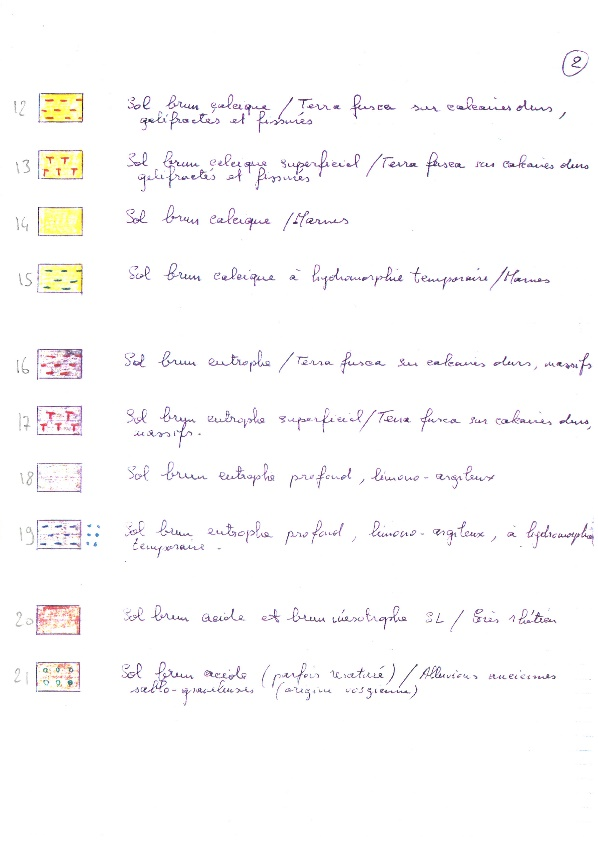 2
12 Sol brun calcique / Terra fusca sur calcaires durs,
gélifractés et fissurés
13 Sol brun calcique superficiel / Terra fusca sur calcaires durs
gélifractés et fissurés
14 Sol brun calcique / Marnes
15 Sol brun calcique à hydromorphie temporaire / Marnes
16 Sol brun eutrophe / Terra fusca sur calcaires durs, massifs
17 Sol brun eutrophe superficiel / Terra fusca sur calcaires durs,
massifs.
18 Sol brun eutrophe profond, limono-argileux
19 Sol brun eutrophe profond, limono-argileux, à hydromorphie
temporaire.
20 Sol brun acide et brun mésotrophe SL / Grès rhétien
21 Sol brun acide (parfois resaturé) / Alluvions anciennes
sablo-graveleuses (origine vosgienne)